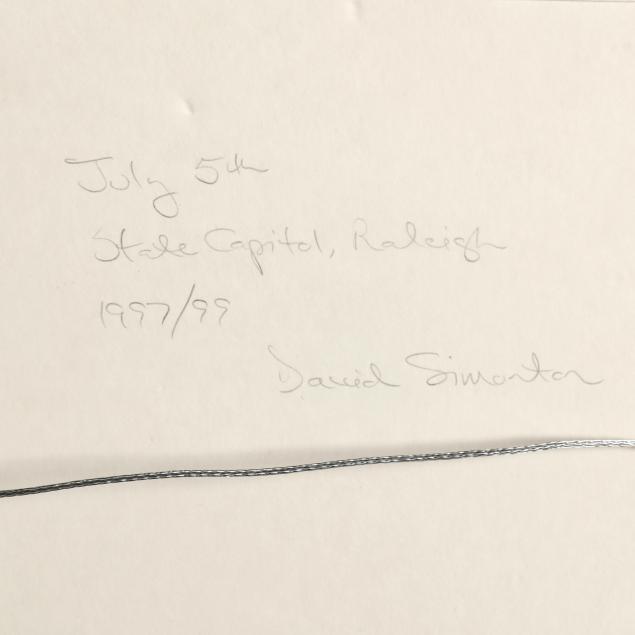 July 5th
State Capitol, Raleigh
1997/99
David Simonton